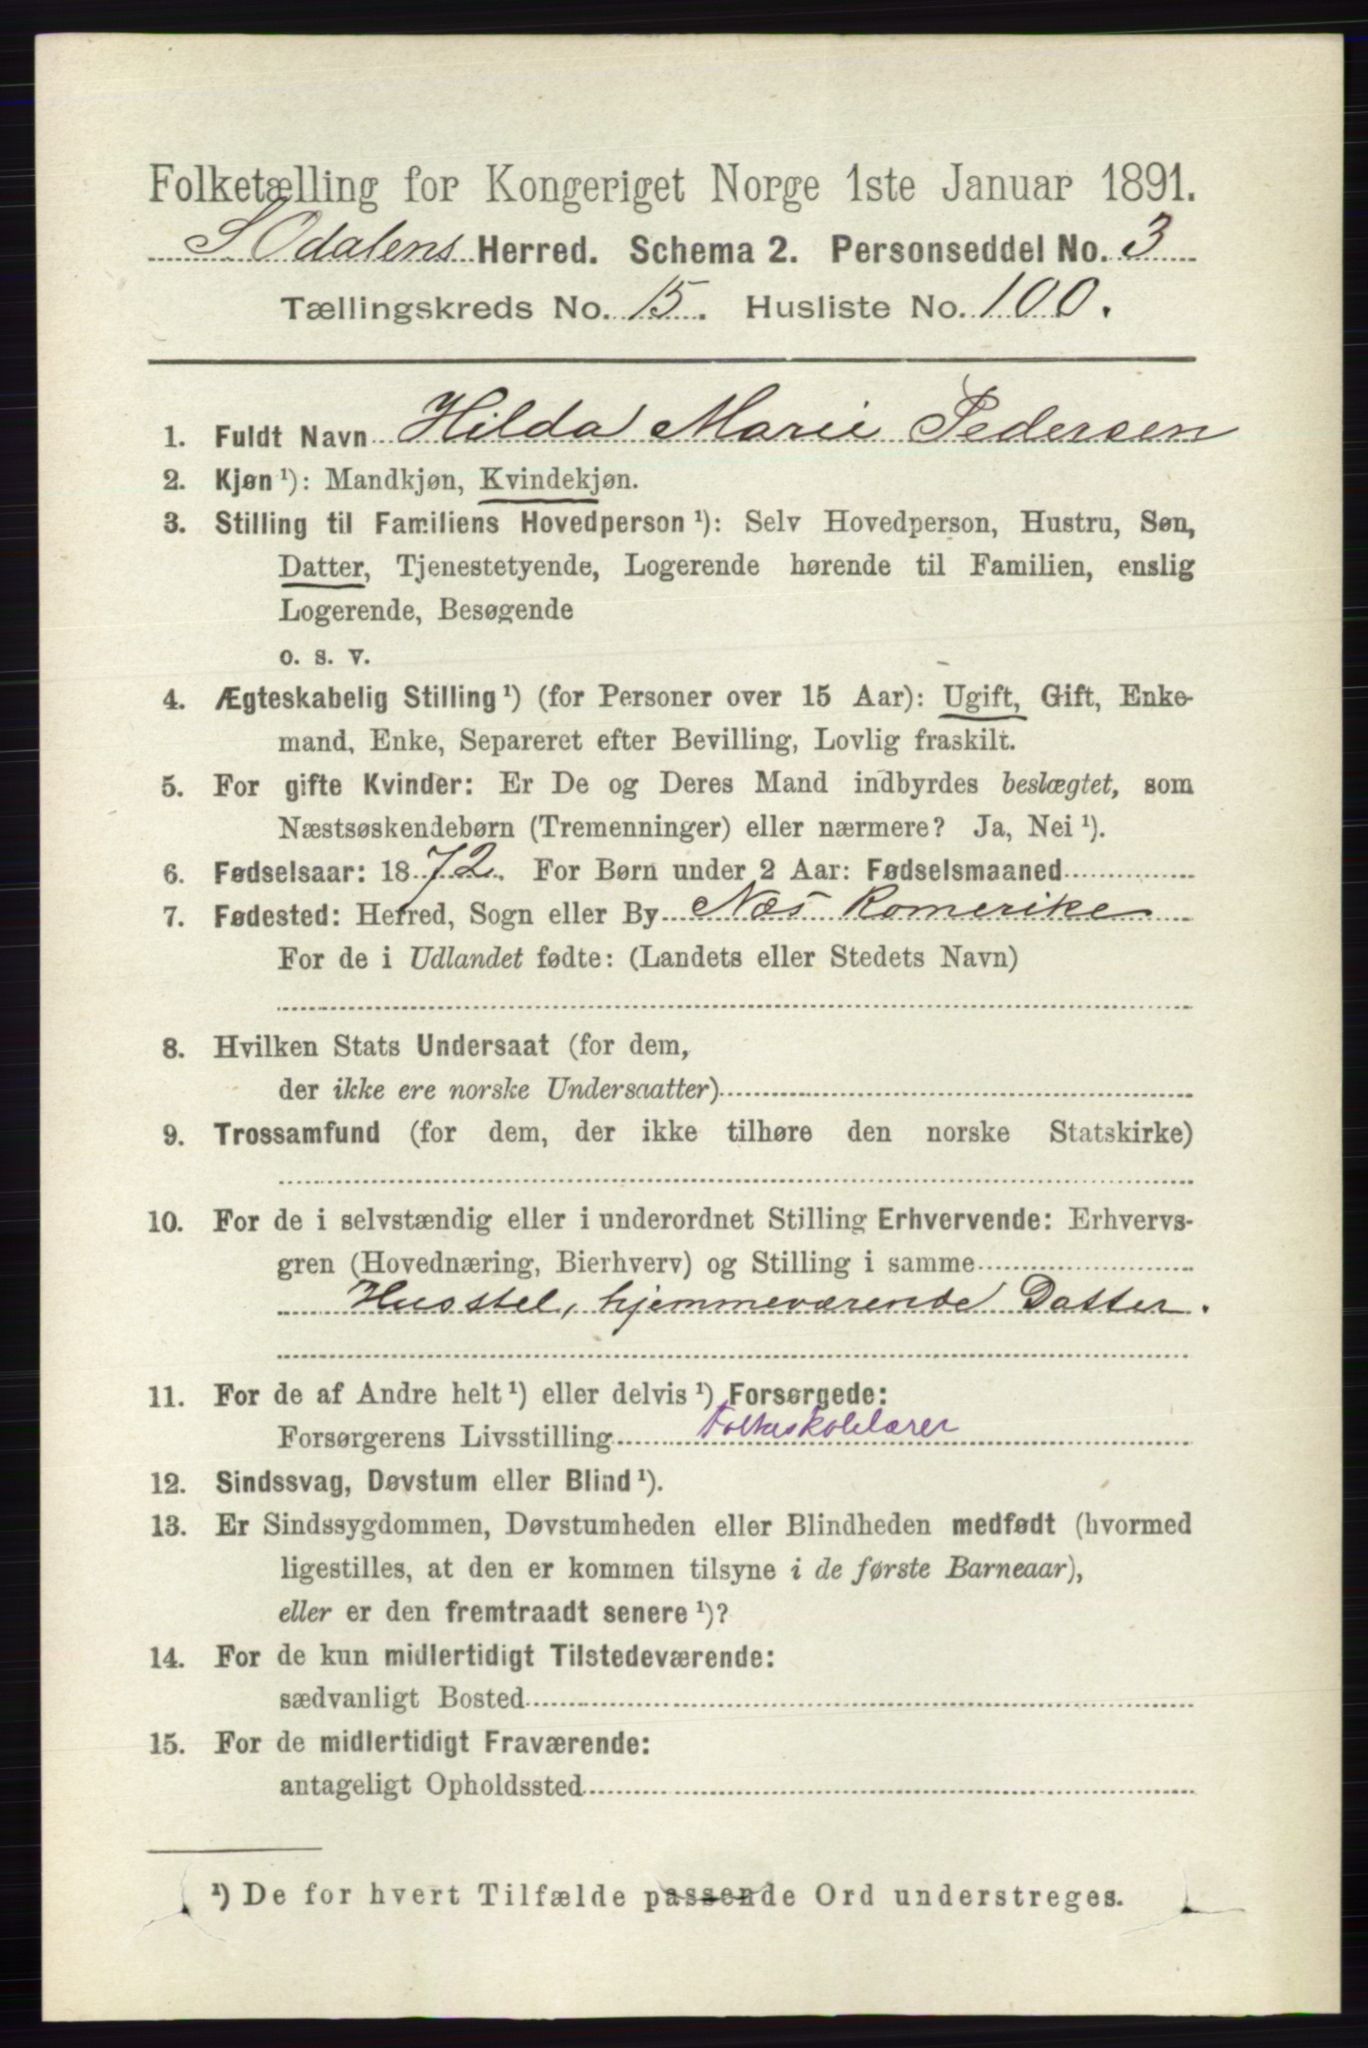 Folketælling for Kongeriget Norge 1ste Januar 1891.
S Odalens Herred. Schema 2. Personseddel No. 3
Tællingskreds No. 15. Husliste No. 100.
1. Fuldt Navn Hilda Marie Pedersen
2. Kjøn ¹): Mandkjøn, Kvindekjøn.
3. Stilling til Familiens Hovedperson ¹): Selv Hovedperson, Hustru, Søn,
Datter, Tjenestetyende, Logerende hørende til Familien, enslig
Logerende, Besøgende
o. s. v.
4. Ægteskabelig Stilling ¹) (for Personer over 15 Aar): Ugift, Gift, Enke-
mand, Enke, Separeret efter Bevilling, Lovlig fraskilt.
5. For gifte Kvinder: Er De og Deres Mand indbyrdes beslægtet, som
Næstsøskendebørn (Tremenninger) eller nærmere? Ja, Nei ¹).
6. Fødselsaar: 1872. For Børn under 2 Aar: Fødselsmaaned
7. Fødested: Herred, Sogn eller By Næs Romerike
For de i Udlandet fødte: (Landets eller Stedets Navn)
8. Hvilken Stats Undersaat (for dem,
der ikke ere norske Undersaatter)
9. Trossamfund (for dem, der ikke tilhøre den norske Statskirke)
10. For de i selvstændig eller i underordnet Stilling Erhvervende: Erhvervs-
gren (Hovednæring, Bierhverv) og Stilling i samme
Husstel, hjemmeværende Datter.
11. For de af Andre helt ¹) eller delvis ¹) Forsørgede:
Forsørgerens Livsstilling Folkeskolelærer
12. Sindssvag, Døvstum eller Blind ¹).
13. Er Sindssygdommen, Døvstumheden eller Blindheden medfødt (hvormed
ligestilles, at den er kommen tilsyne i de første Barneaar),
eller er den fremtraadt senere ¹)?
14. For de kun midlertidigt Tilstedeværende:
sædvanligt Bosted
15. For de midlertidigt Fraværende:
antageligt Opholdssted
¹) De for hvert Tilfælde passende Ord understreges.